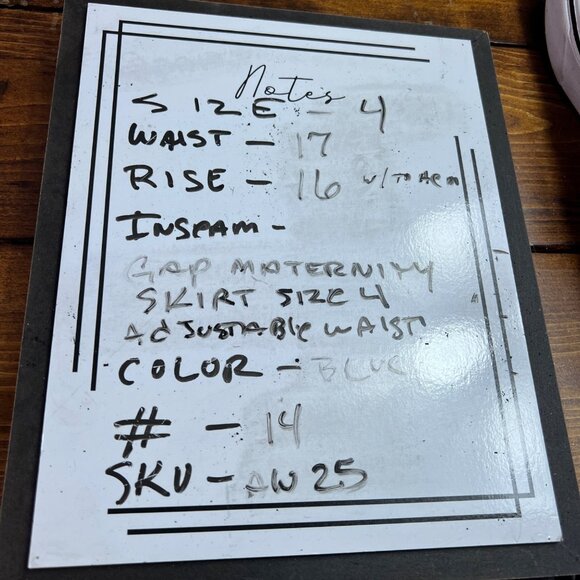 Notes
SIZE - 4
WAIST - 17
RISE - 16
INSEAM -
GAP MATERNITY
SKIRT SIZE 4
ADJUSTABLE WAIST
COLOR - BLUE
# - 14
SKU - AW 25